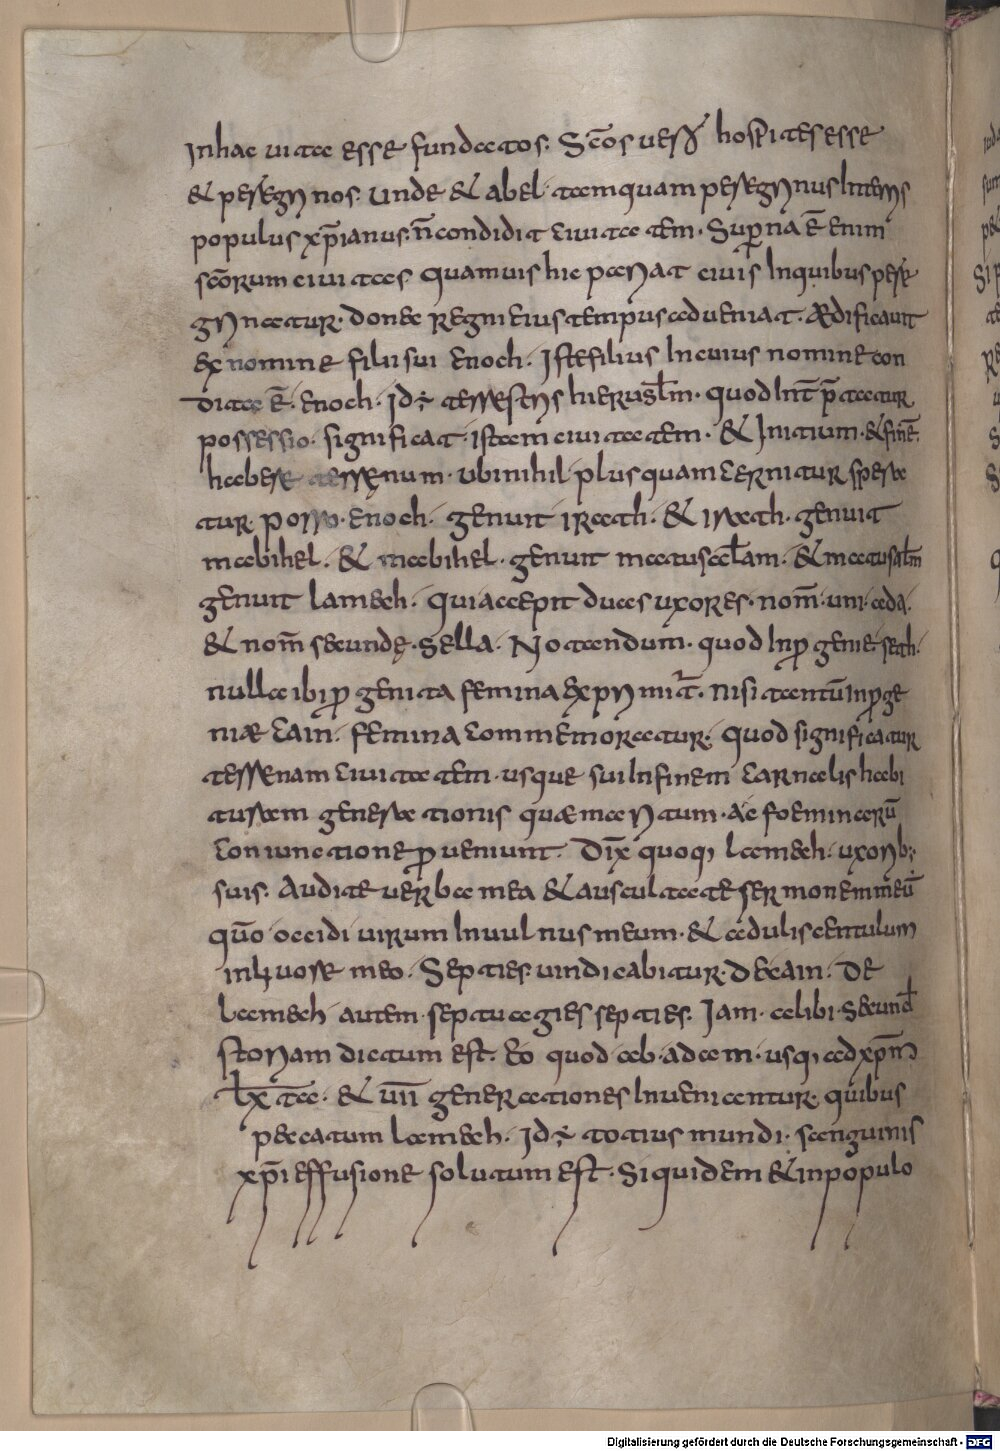 In hac uita esse fundatos. Sc̄os uero hospites esse
& peregrinos. unde & abel tamquam peregrinus In terris
populus xp̄ianus. n̄ condidit ciuitatem. Superna ē enim
sc̄orum ciuitas quamuis hic pariat ciuis In quibus pere
grinatur. donec regni eius tempus adueniat. Ædificauit
ex nomine filii sui enoch. Iste filius In cuius nomine con
dita ē. enoch. Id÷ terrestris hierusl̄m. quod Int̄ p̄tatur
possessio. significat. istam ciuitatem. & Initium. & finē.
habere terrenum. ubi nihil plus quam cernitur spera
tur. porro. enoch. genuit irath. & irath. genuit
mabihel. & mabihel. genuit matusal̄am. & matusal̄m
genuit lamech. qui accepit duas uxores. nom̄. uni. ada.
& nom̄ secundę. Sella. Notandum. quod In progenie. seth.
nulla ibi progenita femina exprimit᷒. nisi tantū In proge
niæ cain. femina commemoratur; quod significatur
terrenam ciuitatem. usque sui In finem carnalis habi
turam generationis quæ mari tum. ac foeminarū
coniunctione proueniunt. Dix̄ quoq; lamech. uxorib;
suis. Audite uerba mea & auscultate sermonem meū
quō occidi uirum In uulnus meum. & adulis centulum
in liuore meo. Septies. uindicabitur. de cain. De
lamech autem. septuagies septies. Jam. alibi. secund̄
storiam dictum est. Eo quod ab. adam. usq; ad xp̄m
lx̄ta. & uii̅ generationes Inueniantur. quibus
peccatum lamech. Id÷ totius mundi. sanguinis
xp̄i effusione solutum est. Siquidem & in populo
Digitalisierung gefördert durch die Deutsche Forschungsgemeinschaft - DFG